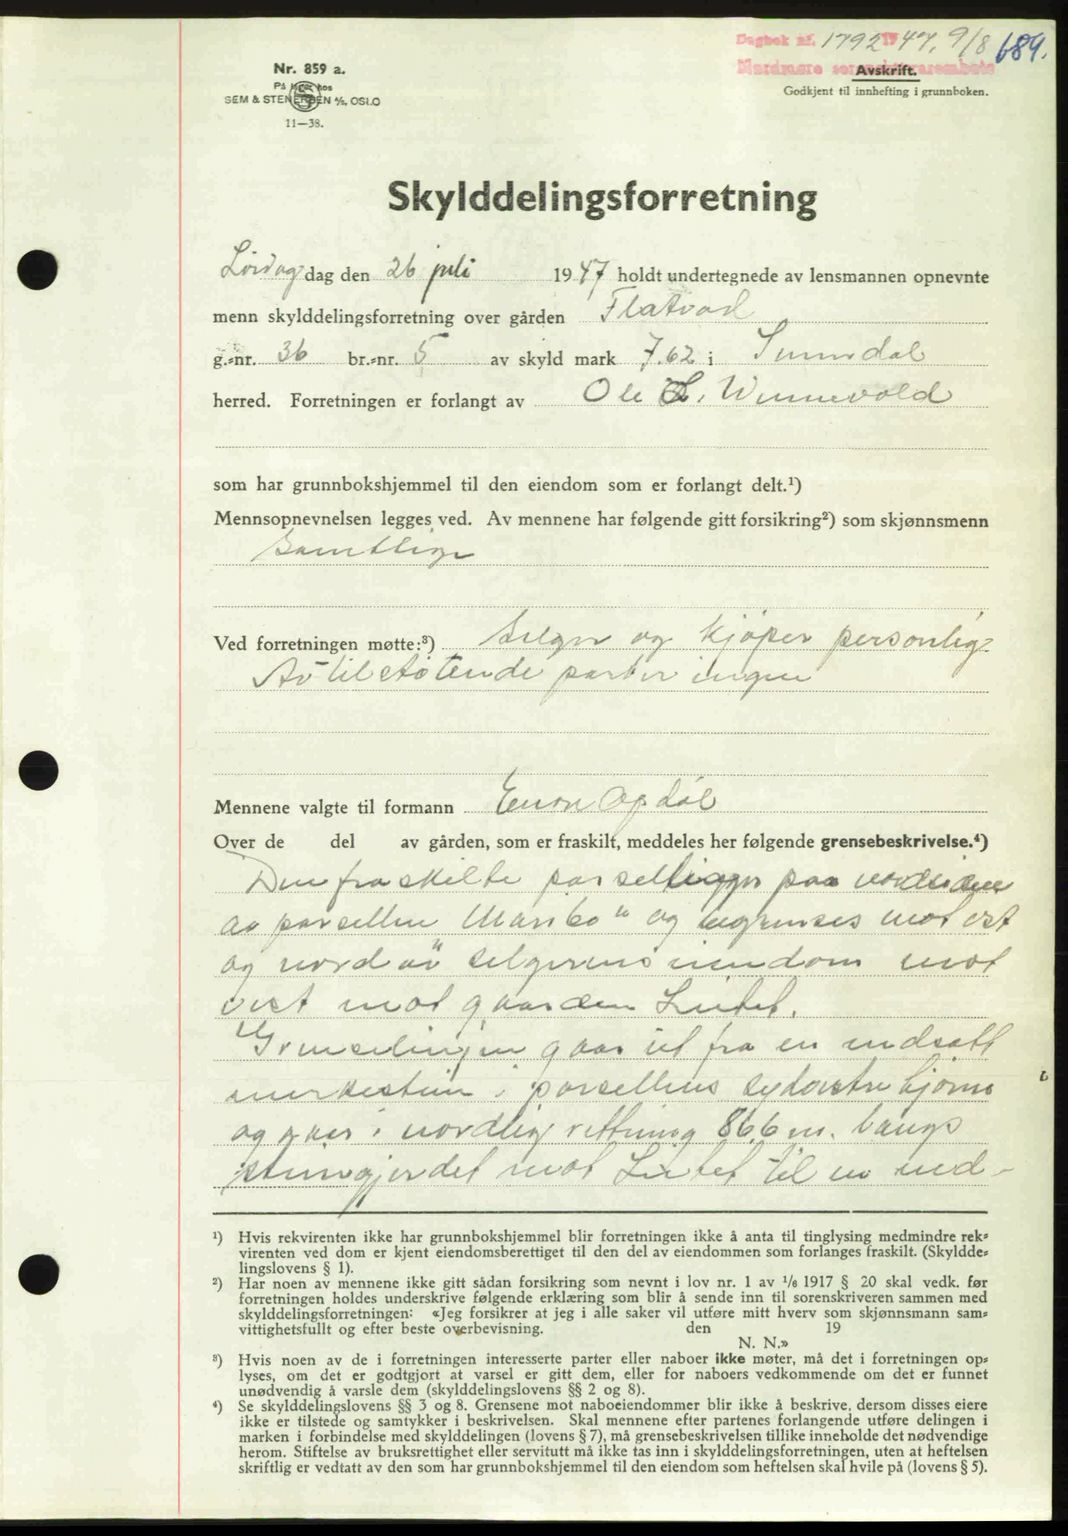 Dagbok nr. 1792 1947, 9/8 689.
Nordmøre sorenskriverembete
Avskrift.
Godkjent til innhefting i grunnboken.
Nr. 859 a.
På lager hos
SEM & STENERSEN A/S, OSLO
11—38.
Skylddelingsforretning
Lördag dag den 26 juli 1947 holdt undertegnede av lensmannen opnevnte
menn skylddelingsforretning over gården Flatvad
g.=nr. 36 br.=nr. 5 av skyld mark 7.62 i Sunndal
herred. Forretningen er forlangt av Ole L. Winnevold
som har grunnbokshjemmel til den eiendom som er forlangt delt.¹)
Mennsopnevnelsen legges ved. Av mennene har følgende gitt forsikring²) som skjønnsmenn
Samtlige
Ved forretningen møtte:³) Selger og kjöper personlig.
Av tilstötende parter ingen
Mennene valgte til formann Einar Opdöl
Over de del av gården, som er fraskilt, meddeles her følgende grensebeskrivelse.⁴)
Den fraskilte parsel ligger paa nordsiden
av parsellen Maribo" og begrenses mot öst
og nord av selgerens eiendom mot
vest mot gaarden Litlet.
Grenselinjen gaar ut fra en nedsatt
merkestein i parsellens sydöstre hjörne
og gaar i nordlig rettning 86.6 m. langs
steingjerdet mot Litlet til en ned-
¹) Hvis rekvirenten ikke har grunnbokshjemmel blir forretningen ikke å anta til tinglysing medmindre rek=
virenten ved dom er kjent eiendomsberettiget til den del av eiendommen som forlanges fraskilt. (Skyldde=
lingslovens § 1).
²) Har noen av mennene ikke gitt sådan forsikring som nevnt i lov nr. 1 av 1/6 1917 § 20 skal vedk. før
forretningen holdes underskrive følgende erklæring som blir å sende inn til sorenskriveren sammen med
skylddelingsforretningen: «Jeg forsikrer at jeg i alle saker vil utføre mitt hverv som skjønnsmann sam=
vittighetsfullt og efter beste overbevisning. den 19
N. N.»
³) Hvis noen av de i forretningen interesserte parter eller naboer ikke møter, må det i forretningen op=
lyses, om det er godtgjort at varsel er gitt dem, eller for naboers vedkommende om det er funnet
unødvendig å varsle dem (skylddelingslovens §§ 2 og 8).
⁴) Se skylddelingslovens §§ 3 og 8. Grensene mot naboeiendommer blir ikke å beskrive, dersom disses eiere
ikke er tilstede og samtykker i beskrivelsen. Skal mennene efter partenes forlangende utføre delingen i
marken i forbindelse med skylddelingen (lovens § 7), må grensebeskrivelsen tillike inneholde det nødvendige
herom. Stiftelse av bruksrettighet eller servitutt må ikke tas inn i skylddelingsforretningen, uten at heftelsen
skriftlig er vedtatt av den som har grunnbokshjemmel til den eiendom som heftelsen skal hvile på (lovens § 5).